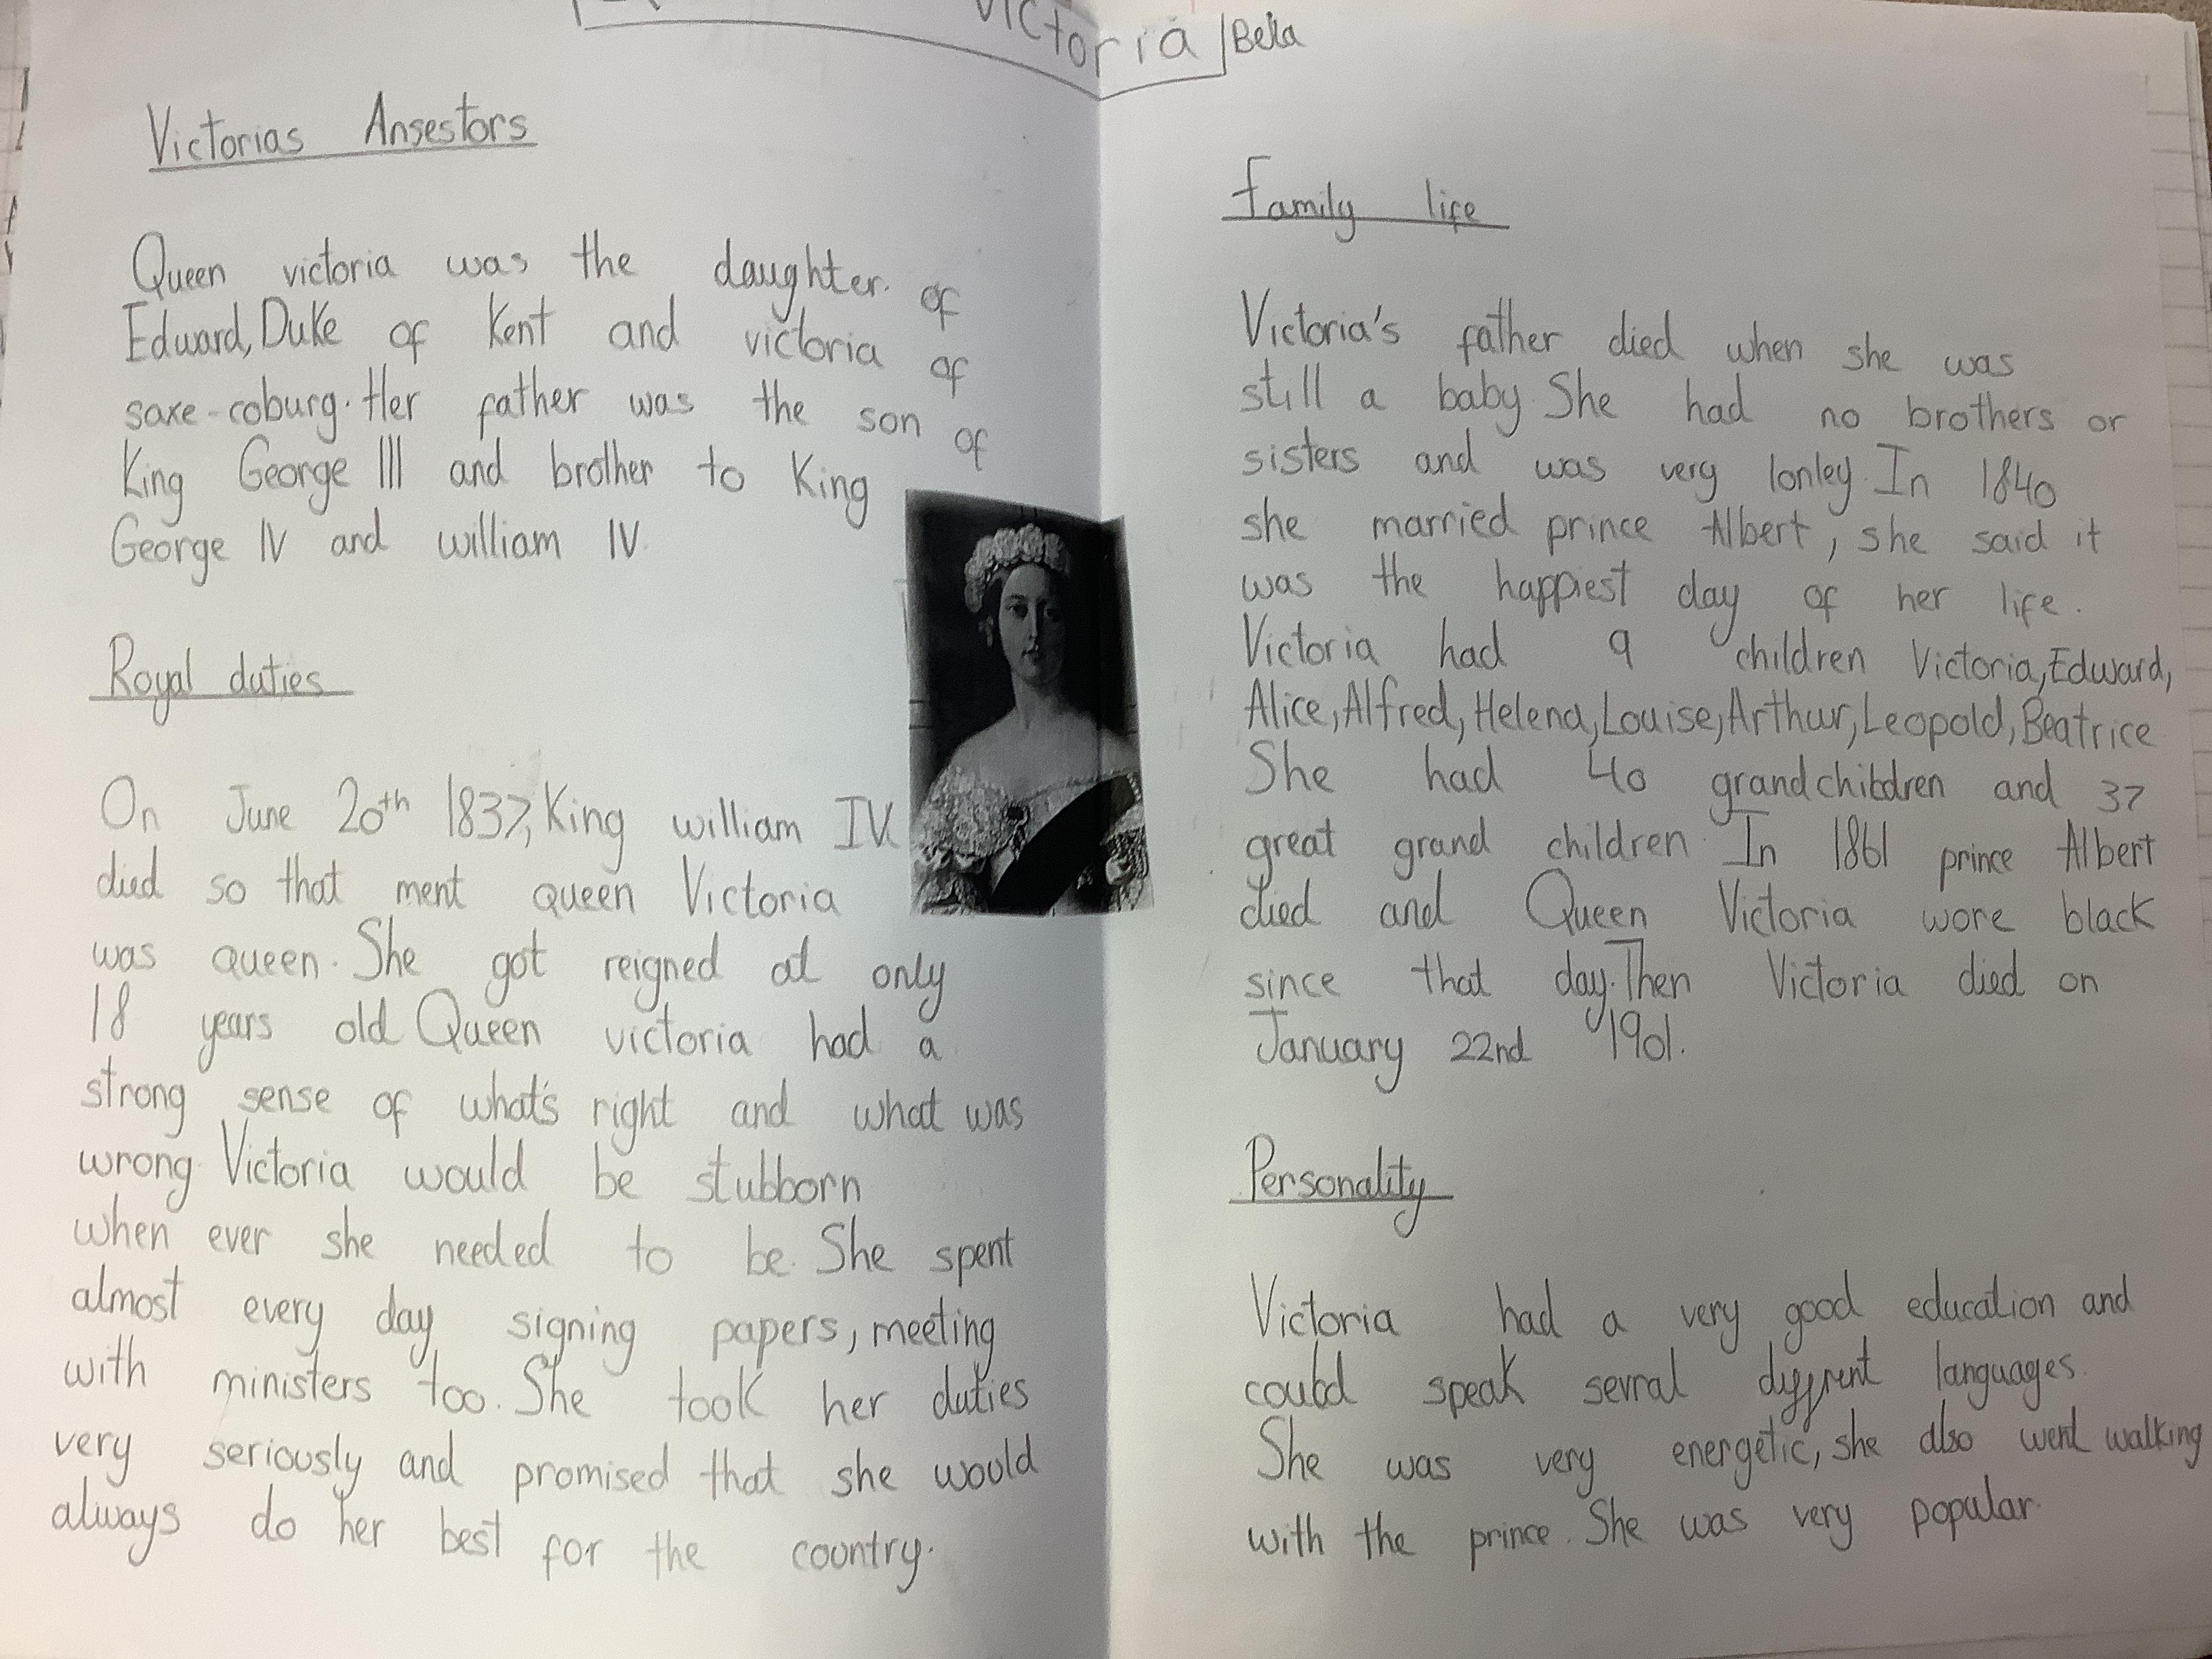 Victoria
Bella
Victorias Ansestors
Queen victoria was the daughter of
Edward, Duke of Kent and victoria of
saxe-coburg. Her father was the son of
King George III and brother to King
George IV and william IV.
Royal duties
On June 20th 1837, King william IV.
died so that ment queen Victoria
was queen. She got reigned at only
18 years old Queen victoria had a
strong sense of what's right and what was
wrong. Victoria would be stubborn
when ever she needed to be. She spent
almost every day signing papers, meeting
with ministers too. She took her duties
very seriously and promised that she would
always do her best for the country.
Family life
Victoria's father died when she was
still a baby. She had no brothers or
sisters and was very lonley. In 1840
she married prince Albert, she said it
was the happiest day of her life.
Victoria had 9 children Victoria, Edward,
Alice, Alfred, Helena, Louise, Arthur, Leopold, Beatrice
She had 40 grandchildren and 37
great grand children. In 1861 prince Albert
died and Queen Victoria wore black
since that day. Then Victoria died on
January 22nd 1901.
Personality
Victoria had a very good education and
could speak sevral diffrent languages.
She was very energetic, she also went walking
with the prince. She was very popular.